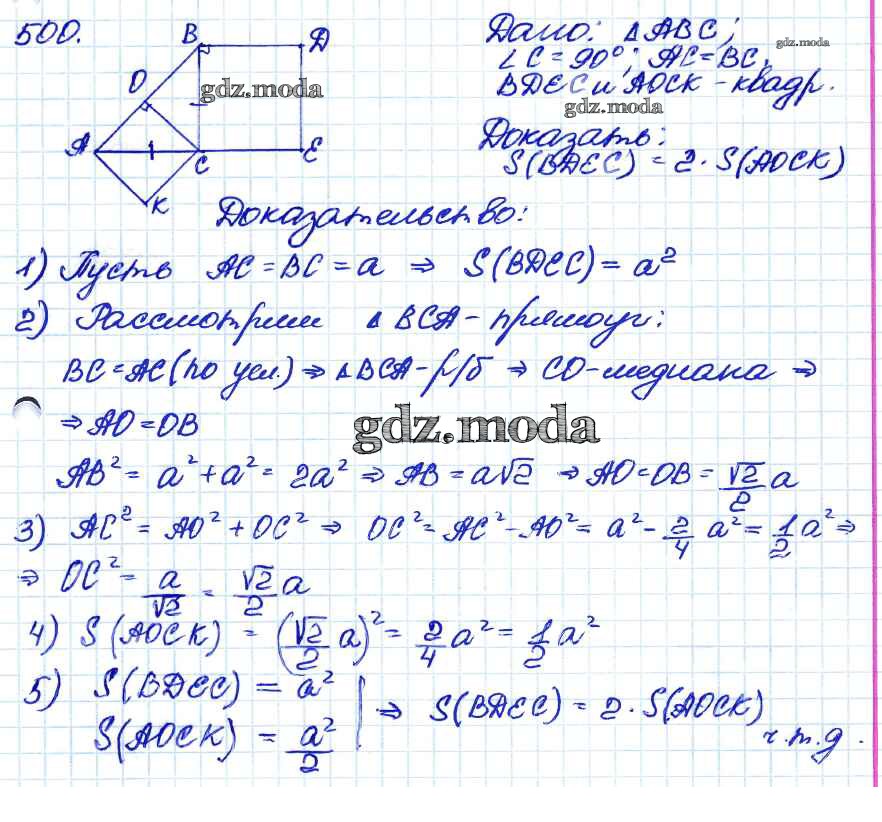 500.
B
D
O
A
C
E
K
gdz.moda
Дано: △ABC;
∠C = 90°; AC = BC,
gdz.moda
BDEC и AOCK - квадр.
gdz.moda
Доказать:
S(BDEC) = 2 · S(AOCK)
Доказательство:
1) Пусть AC = BC = a ⇒ S(BDEC) = a²
2) Рассмотрим △BCA - прямоуг:
BC = AC (по усл.) ⇒ △BCA - р/б ⇒ CO - медиана ⇒
⇒ AO = OB
gdz.moda
AB² = a² + a² = 2a² ⇒ AB = a√2 ⇒ AO = OB = √2/2 a
3) AC² = AO² + OC² ⇒ OC² = AC² - AO² = a² - 2/4 a² = 1/2 a² ⇒
⇒ OC² = a/√2 = √2/2 a
4) S(AOCK) = (√2/2 a)² = 2/4 a² = 1/2 a²
5) S(BDEC) = a²
S(AOCK) = a²/2
⇒ S(BDEC) = 2 · S(AOCK)
ч.т.д.